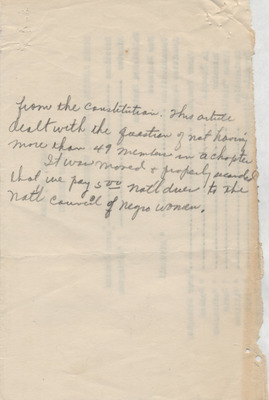 from the constitution. This article
dealt with the question of not having
more than 49 members in a chapter
It was moved & properly seconded
that we pay 5.00 Natl dues to the
Natl Council of Negro Women.